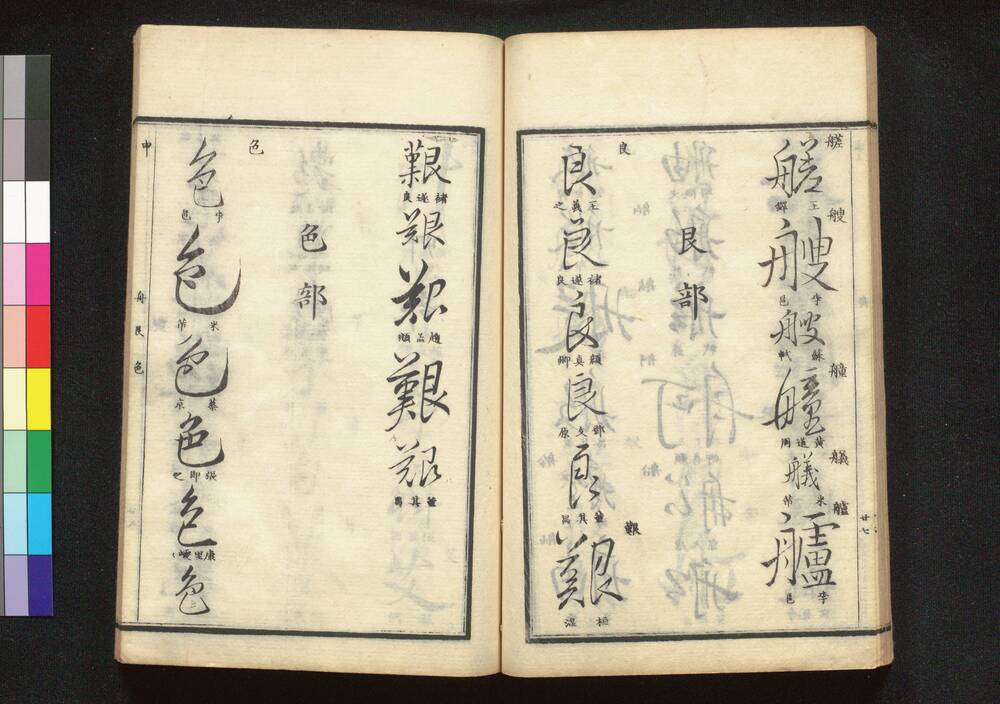 艖
艖
王鐸
艘
艘
李邕
艘
蘇軾
艟
艟
黄道周
艤
艤
米芾
艫
艫
李邕
廿七
艮部
良
良
王羲之
良
褚遂良
良
顔真卿
良
鄧文原
良
董其昌
艱
艱
桓温
艱
褚遂良
艱
艱
趙孟頫
艱
艱
董其昌
色部
色
色
李邕
色
米芾
色
蔡京
色
張即之
色
康里巎〻
色
申
舟艮色